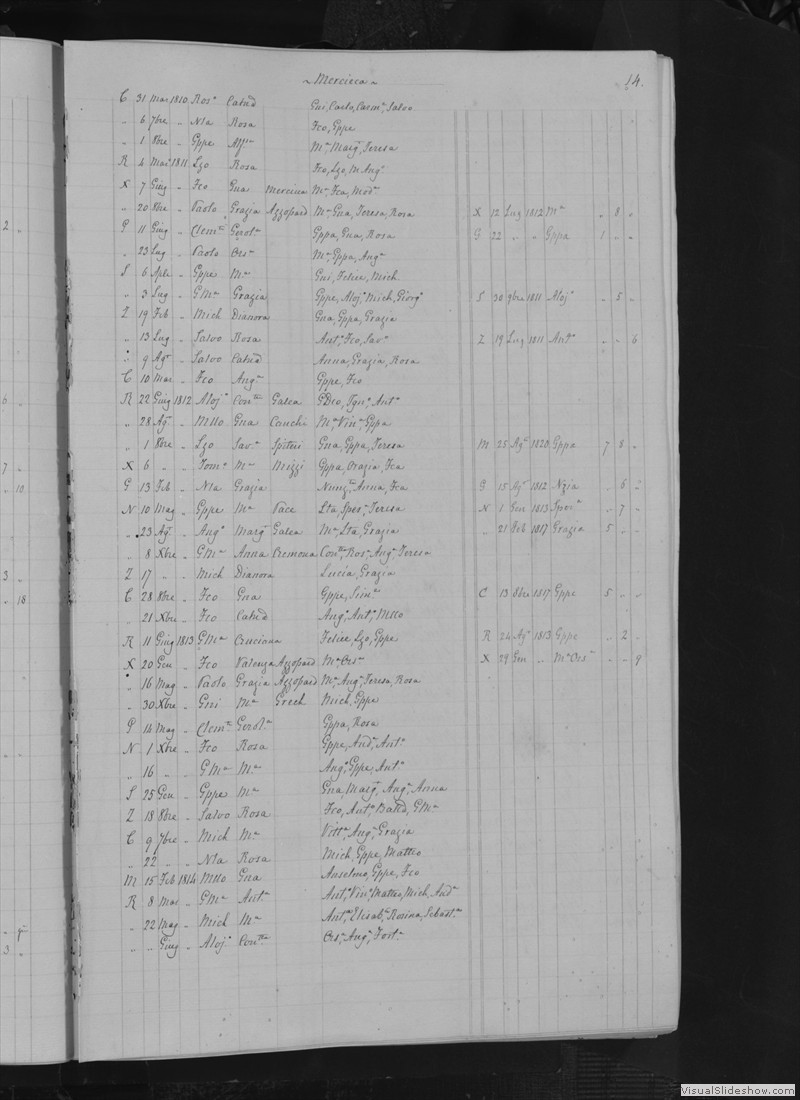 Mercieca
14.
C 31 Mar 1810 Ros.ª Catud Gui, Carlo, Carm.ª, Salvo
" 6 7bre " Nla Rosa Fco, Gppe
" 1 8bre " Gppe M.ª Marg.ª, Teresa
R 4 Mar 1811 Lzo Rosa Fco, Lzo, M Ang.ª
X 7 Giug " Fco Gna Mercieca M.ª, Fca, Mod.ª
" 20 8bre " Paolo Grazia Azzopard M.ª, Gna, Teresa, Rosa X 12 Lug 1812 M.ª " 8 "
P 11 Giug " Clem.te Gerol.ª Gppa, Gna, Rosa G 22 " " Gppa 1 " "
" 23 Lug " Paolo Ors.ª M.ª, Gppa, Ang.ª
S 6 Aple " Gppe M.ª Gui, Felice, Mich
" 3 Lug " GM.ª Grazia Gppe, Aloj.º, Mich, Giorg.º S 30 9bre 1811 Aloj.º " 5 "
Z 19 Feb " Mich Dianora Gna, Gppa, Grazia
" 13 Lug " Salvo Rosa Ant.º, Fco, Sav.ª Z 19 Lug 1811 Ant.º " " 6
" 9 Ag.º " Salvo Catud Anna, Grazia, Rosa
C 10 Mar " Fco Ang.ª Gppe, Fco
R 22 Giug 1812 Aloj.º Con.tta Galea GDco, Ign.º, Ant.ª
" 28 Ag.º " Mllo Gna Cauchi M.ª, Vin.ª, Gppa
" 1 8bre " Lzo Sav.ª Spiteri Gna, Gppa, Teresa M 25 Ag.º 1820 Gppe 7 8 "
X 6 " " Tom.º M.ª Mizzi Gppa, Orazia, Fca
G 13 Feb " Nla Grazia Nunz.ª, Anna, Fca G 15 Ag.º 1812 Nzia " 6 "
N 10 Mag " Gppe M.ª Pace Lta, Sper.ª, Teresa N 1 Gen 1813 Sper.ª " 7 "
" 23 Ag.º " Ang.º Marg.ª Galea M.ª, Lta, Grazia " 21 Feb 1817 Grazia 5 " "
" 8 Xbre " GM.ª Anna Cremona Con.tta, Ros.ª, Ang.ª, Teresa
Z 17 " " Mich Dianora Lucia, Grazia
C 28 8bre " Fco Gna Gppe, Sim.ª C 13 8bre 1817 Gppe 5 " "
" 21 Xbre " Fco Catud Ang.º, Ant.º, Mllo
R 11 Giug 1813 GM.ª Crucinna Felice, Lzo, Gppe R 24 Ag.º 1813 Gppe " 2 "
X 20 Gen " Fco Valenza Azzopard M.ª, Ors.ª X 29 Gen " M.ª Ors.ª " " 9
" 16 Mag " Paolo Grazia Azzopard M.ª, Ang.ª, Teresa, Rosa
" 30 Xbre " Gui M.ª Grech Mich, Gppa
P 14 Mag " Clem.te Gerol.ª Gppa, Rosa
N 1 Xbre " Fco Rosa Gppe, And.ª, Ant.ª
" 16 " " GM.ª M.ª Ang.º, Gppe, Ant.ª
S 25 Gen " Gppe M.ª Gna, Marg.ª, Ang.ª, Anna
Z 18 8bre " Salvo Rosa Fco, Ant.º, Batd, GM.ª
C 9 7bre " Mich M.ª Vitt.ª, Ang.ª, Grazia
" 22 " " Nla Rosa Mich, Gppe, Matteo
M 15 Feb 1814 Mllo Gna Anselmo, Gppe, Fco
R 8 Mar " GM.ª Ant.ª Ant.º, Vin.º, Matteo, Mich, And.ª
" 22 Mag " Mich M.ª Ant.ª, Elisab.ª, Rosina, Sebast.ª
" " Giug " Aloj.º Con.tta Ors.ª, Ang.ª, Fort.ª
VisualSlideshow.com